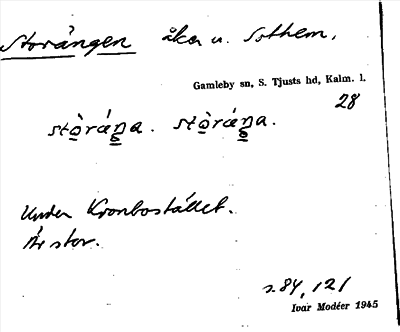 Storängen åker u. Sothem.
Gamleby sn, S. Tjusts hd, Kalm. l.
28
Under Kronbostället.
Är stor.
s. 84, 121
Ivar Modéer 1945